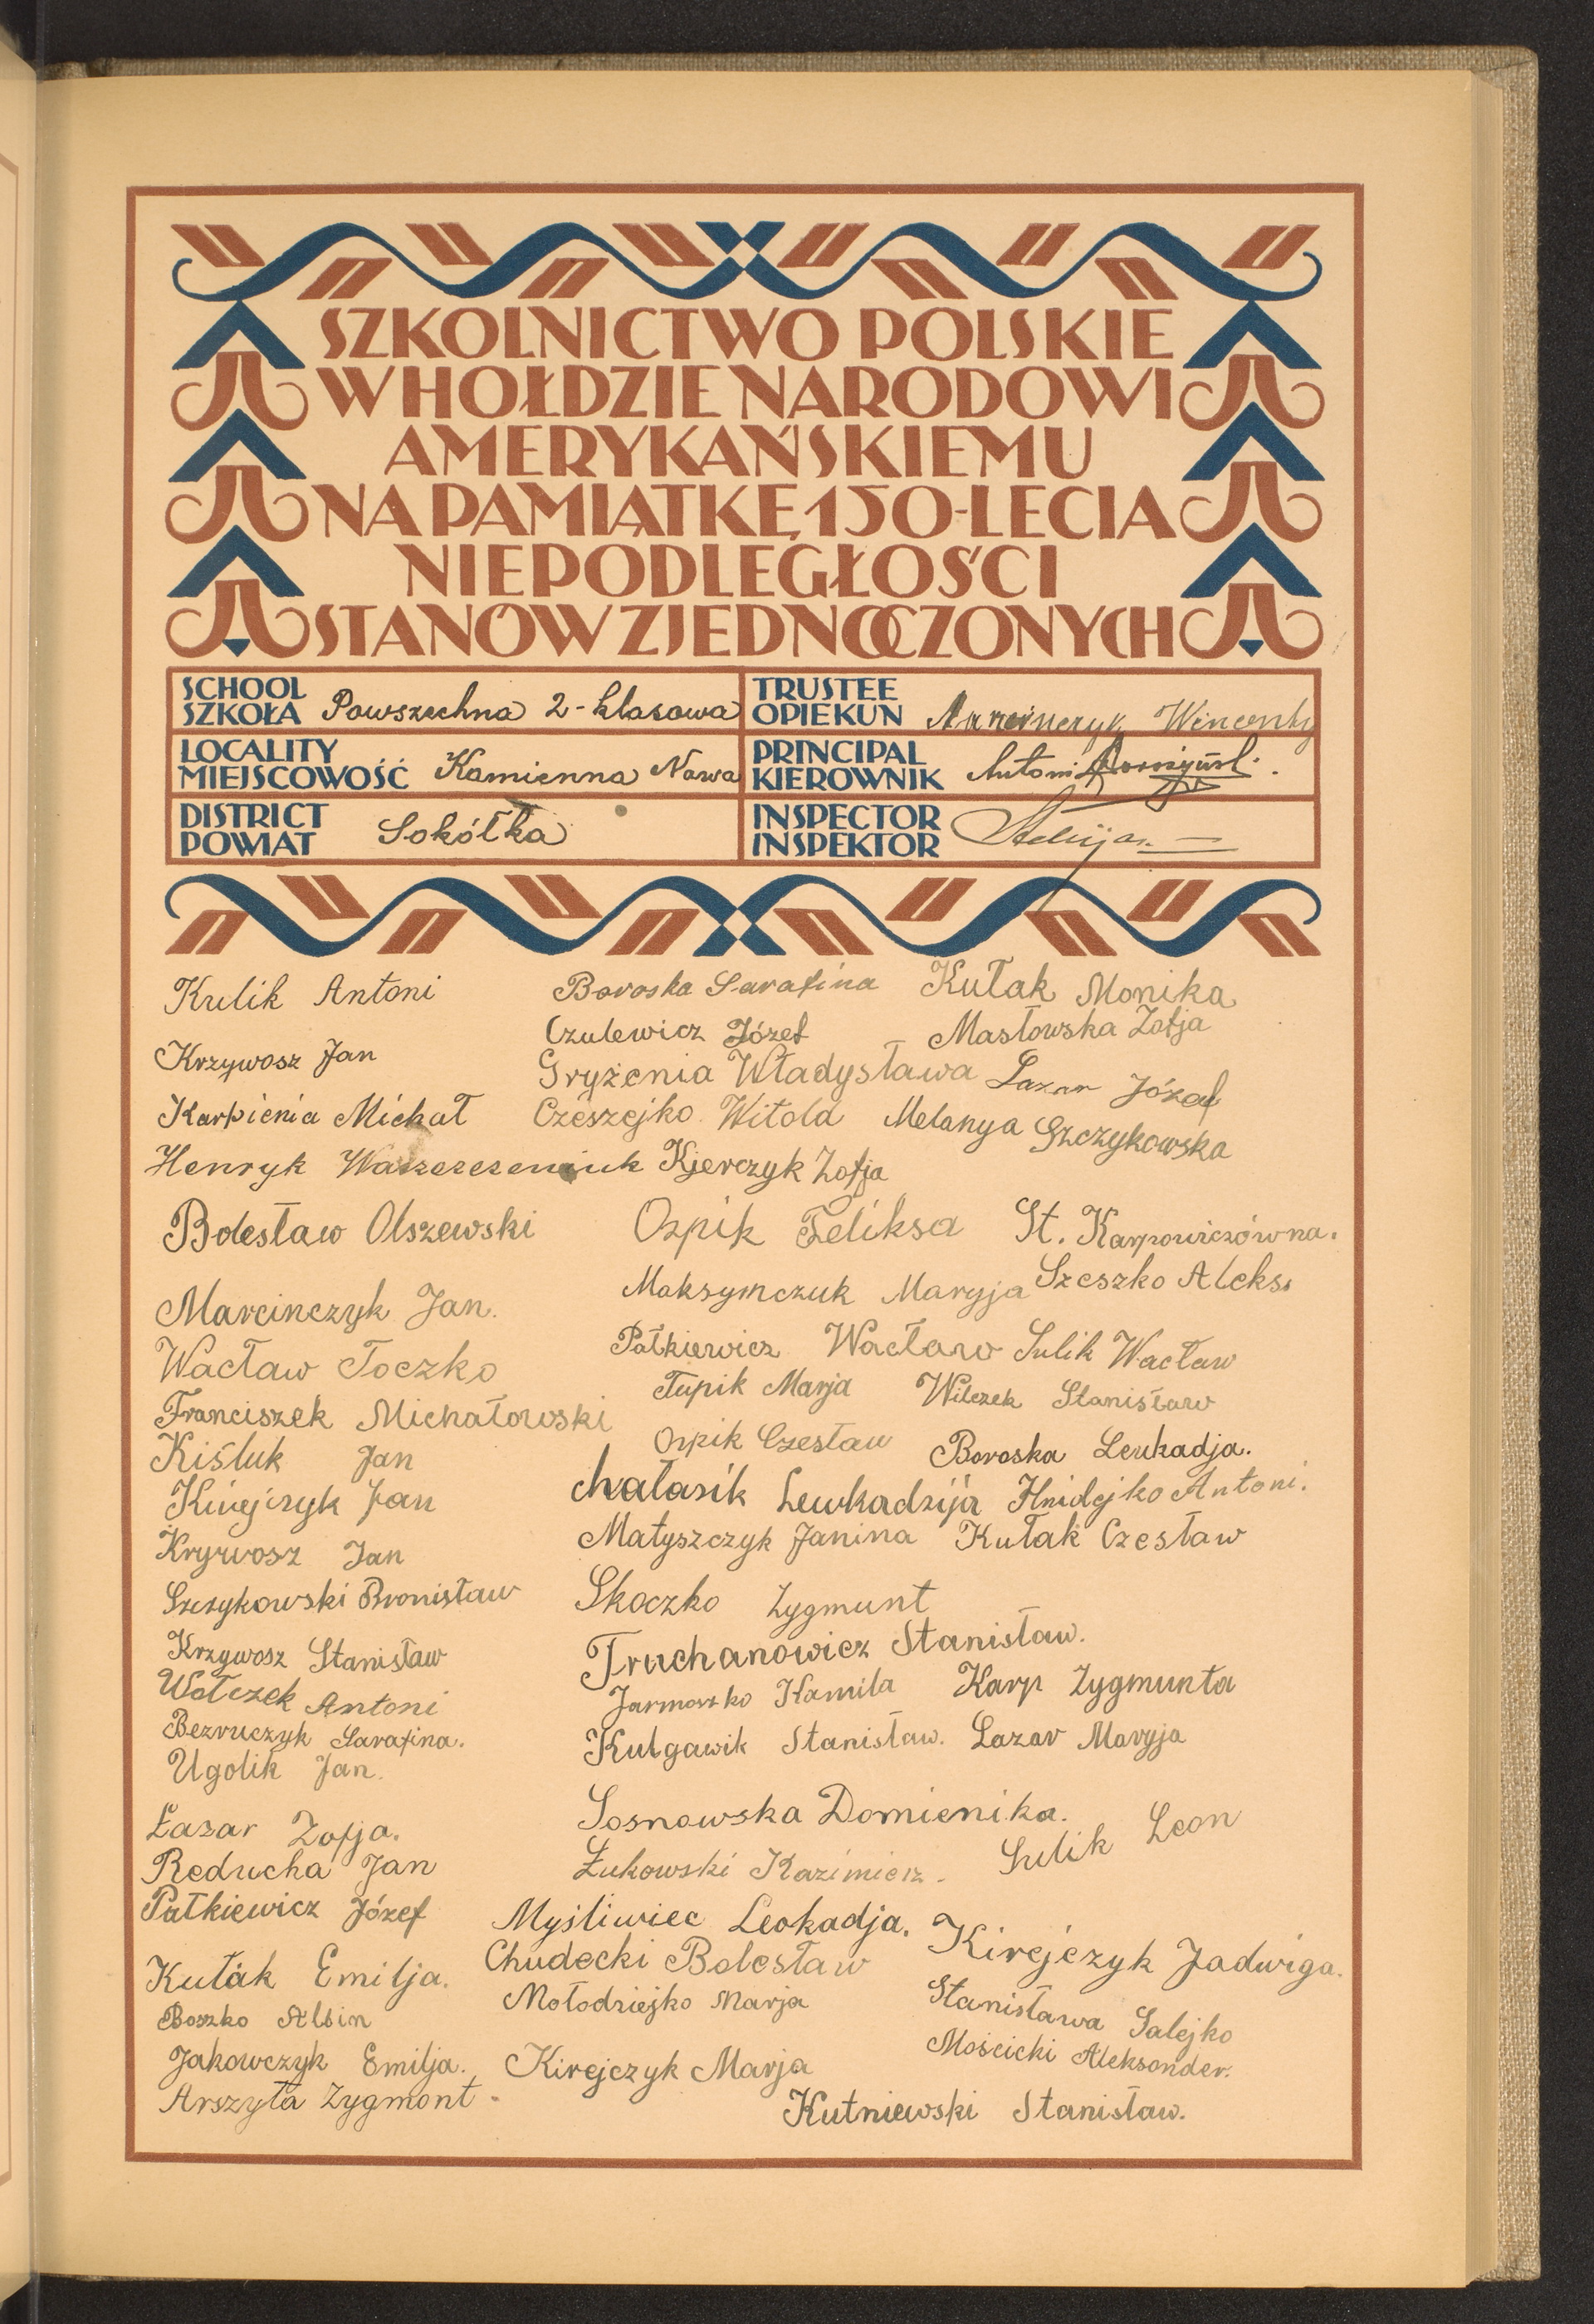 SZKOLNICTWO POLSKIE
W HOŁDZIE NARODOWI
AMERYKAŃSKIEMU
NA PAMIĄTKĘ 150-LECIA
NIEPODLEGŁOŚCI
STANÓW ZJEDNOCZONYCH
SCHOOL
SZKOŁA Powszechna 2-klasowa
TRUSTEE
OPIEKUN Marcinczyk Wincenty
LOCALITY
MIEJSCOWOŚĆ Kamienna Nowa
PRINCIPAL
KIEROWNIK Antoni
DISTRICT
POWIAT Sokółka
INSPECTOR
INSPEKTOR
Kulik Antoni
Krzywosz Jan
Karpienia Michał
Henryk
Bolesław Olszewski
Marcinczyk Jan.
Wacław Toczko
Franciszek Michałowski
Kiśluk Jan
Jan
Krywosz Jan
Szczykowski Bronisław
Krzywosz Stanisław
Wołczek Antoni
Bezruczyk Sarafina.
Ugolik Jan.
Łazar Zofja.
Reducha Jan
Patkiewicz Józef
Kułak Emilja.
Boszko Albin
Jakowczyk Emilja.
Arszyła Zygmont
Boroska Sarafina
Czulewicz Józef
Gryżenia Władysława
Czeszejko Witold
Kjerczyk Zofja
Ospik Feliksa
Maksymczuk Maryja
Patkiewicz Wacław
Tupik Marja
Ospik Czesław
chałasik Lewkadzija
Matyszczyk Janina
Skoczko Zygmunt
Truchanowicz Stanisław.
Jarmoszko Kamila
Kulgawik Stanisław.
Sosnowska Domienika.
Żukowski Kazimierz.
Myśliwiec Leokadja.
Chudecki Bolesław
Mołodziejko Marja
Kirejczyk Marja
Kułak Monika
Masłowska Zofja
Lazar Józef
Melanya Szczykowska
St. Karpowiczówna.
Szeszko Aleks.
Sulik Wacław
Wilczek Stanisław
Boroska Leukadja.
Hnidejko Antoni.
Kułak Czesław
Karp Zygmunta
Lazar Maryja
Sulik Leon
Kirejczyk Jadwiga.
Stanisława Salejko
Mościcki Aleksonder.
Kutniewski Stanisław.